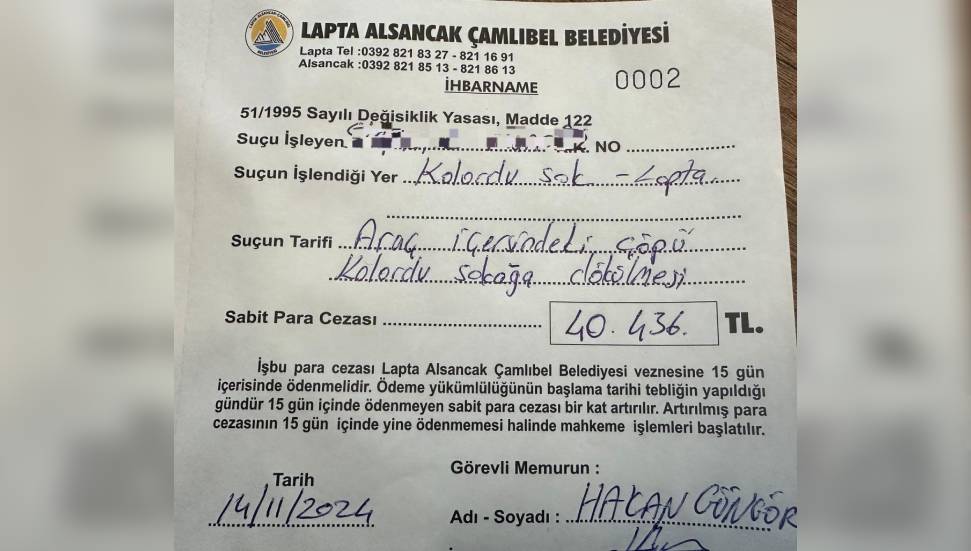 LAPTA ALSANCAK ÇAMLIBEL BELEDİYESİ
Lapta Tel :0392 821 83 27 - 821 16 91
Alsancak :0392 821 85 13 - 821 86 13
İHBARNAME
0002
51/1995 Sayılı Değisiklik Yasası, Madde 122
Suçu İşleyen K. NO
Suçun İşlendiği Yer Kolordu sok - Lapta
Suçun Tarifi Araç içersindeki çöpü
Kolordu sokağa dökülmesi
Sabit Para Cezası 40.436. TL.
İşbu para cezası Lapta Alsancak Çamlıbel Belediyesi veznesine 15 gün
içerisinde ödenmelidir. Ödeme yükümlülüğünün başlama tarihi tebliğin yapıldığı
gündür 15 gün içinde ödenmeyen sabit para cezası bir kat artırılır. Artırılmış para
cezasının 15 gün içinde yine ödenmemesi halinde mahkeme işlemleri başlatılır.
Tarih
14/11/2024
Görevli Memurun :
Adı - Soyadı : HAKAN GÖNGÖR